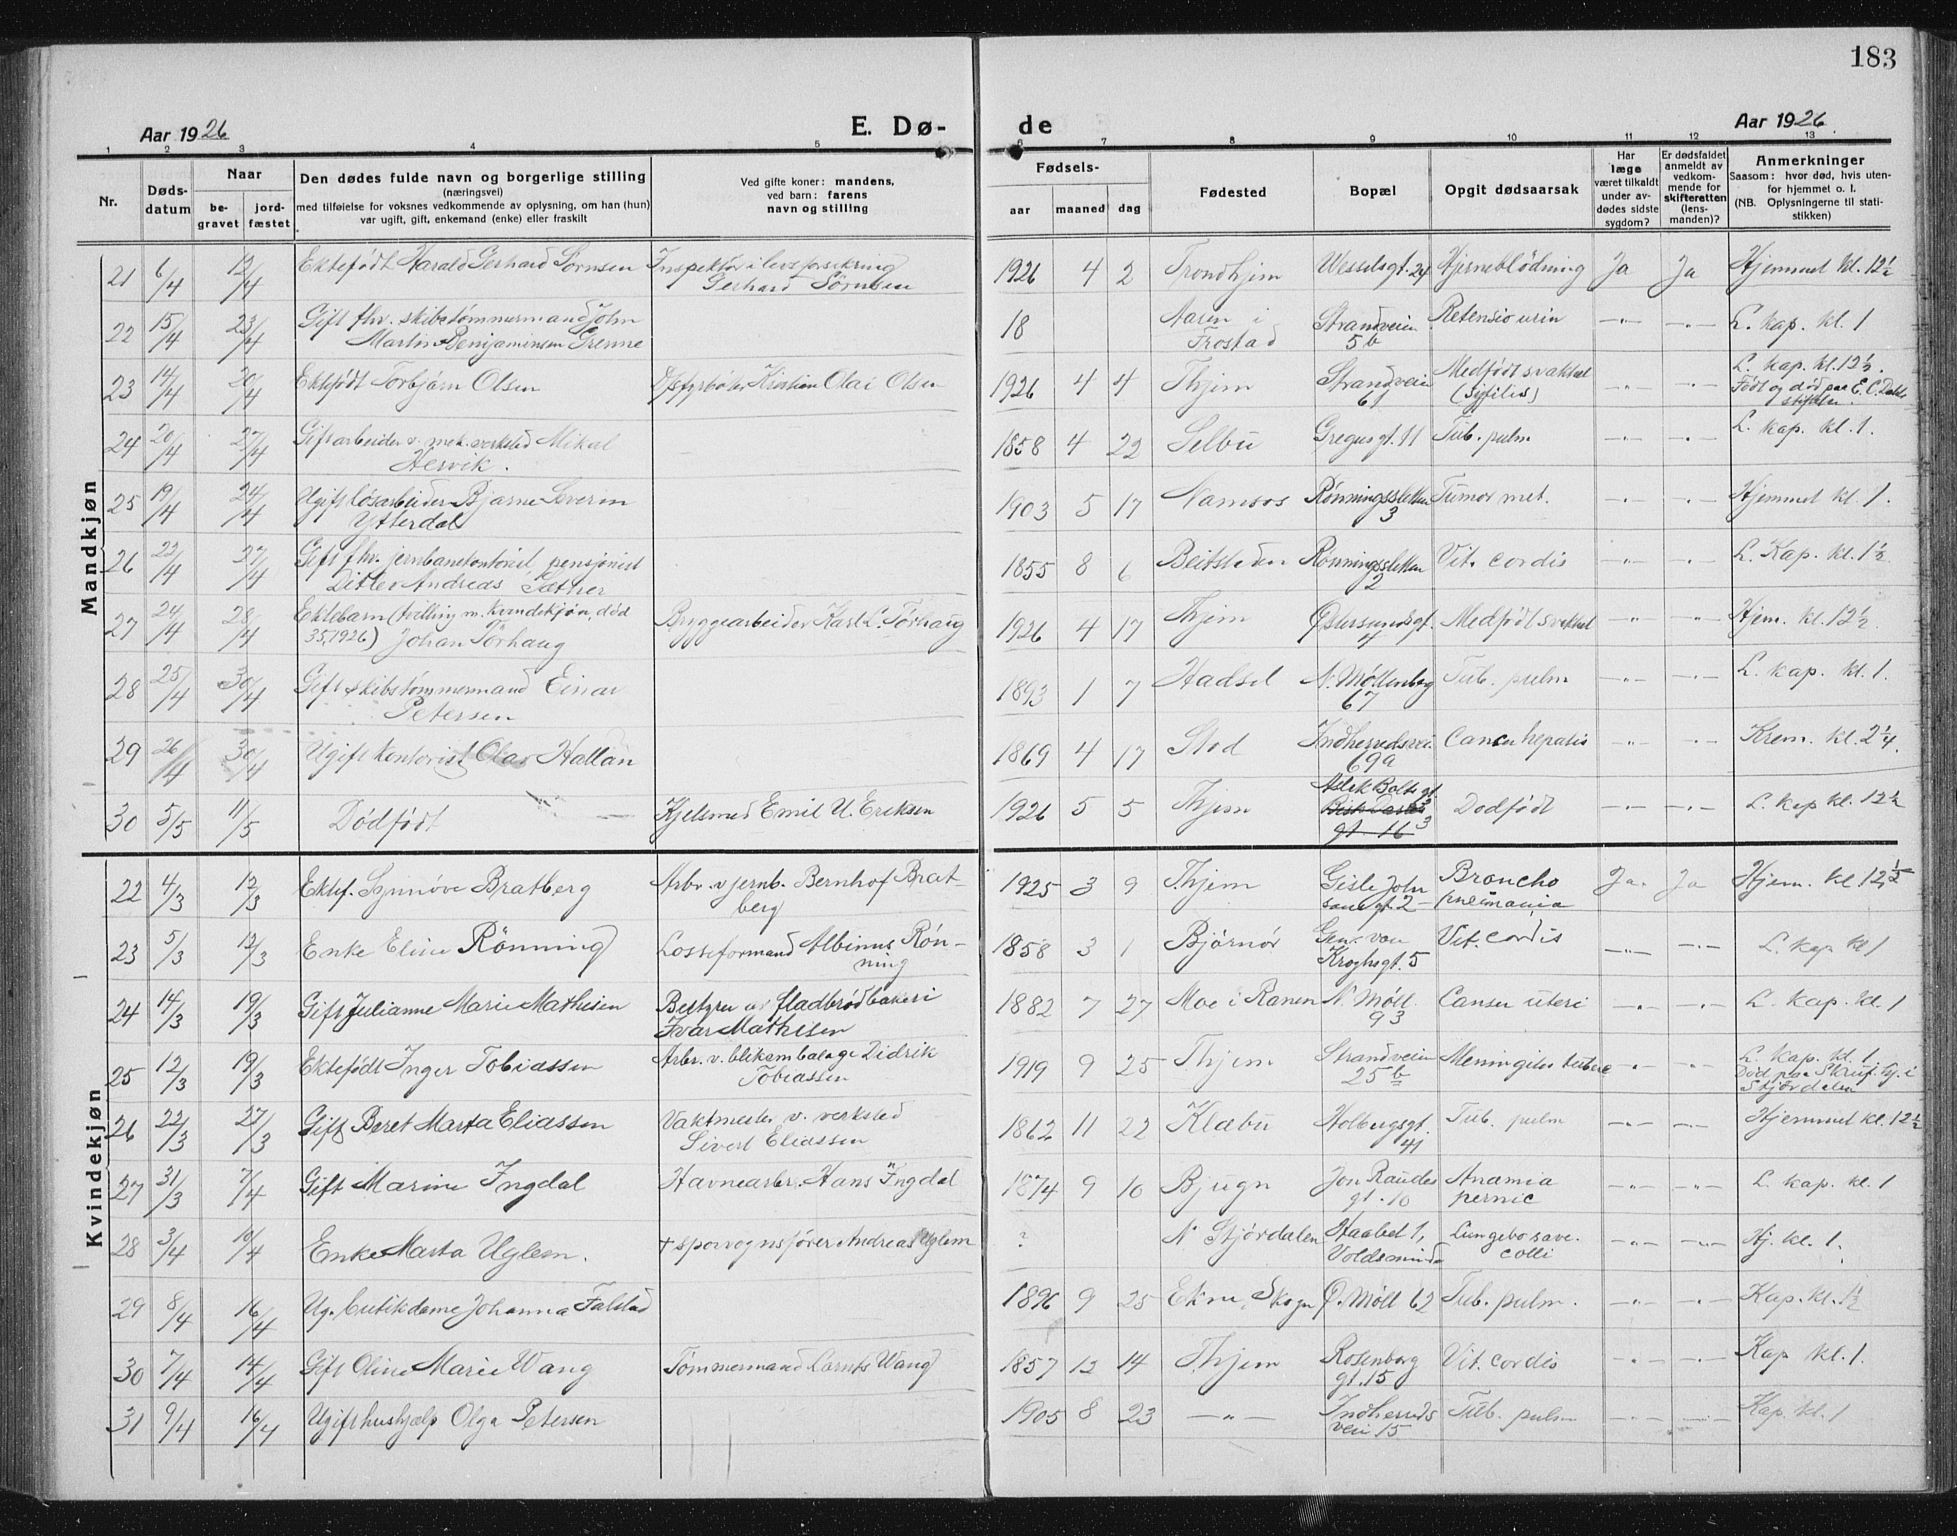 183
Aar 1926
E. Dø-
de
Aar 1926
1 2 3 4 5 6 7 8 9 10 11 12 13
Nr.
Døds-
datum
Naar
be-
gravet
jord-
fæstet
Den dødes fulde navn og borgerlige stilling
(næringsvei)
med tilføielse for voksnes vedkommende av oplysning, om han (hun)
var ugift, gift, enkemand (enke) eller fraskilt
Ved gifte koner: mandens,
ved barn: farens
navn og stilling
Fødsels-
aar maaned dag
Fødested
Bopæl
Opgit dødsaarsak
Har
læge
været tilkaldt
under av-
dødes sidste
sygdom?
Er dødsfaldet
anmeldt av
vedkom-
mende for
skifteretten
(lens-
manden)?
Anmerkninger
Saasom: hvor død, hvis uten-
for hjemmet o. l.
(NB. Oplysningerne til stati-
stikken)
Mandkjøn
21 6/4 12/4 Ektefødt Harald Gerhard Sørnsen Inspektør i
Gerhard Sørnsen
1926 4 2 Trondhjem Wesselsgt. 24 Hjerneblødning Ja Ja Hjemmet kl. 12½
22 15/4 23/4 Gift fhv. skibstømmermand John
Martin Benjaminsen Grenne
18 Aasen i
Frostad
Strandveien
5b
Retensio urin —"— —"— L. kap. kl. 1
23 14/4 20/4 Ektefødt Torbjørn Olsen Kristian Olai Olsen
1926 4 4 Thjem Strandveien
61
Medfødt svakhet
(Syfilis)
—"— —"— L. kap. kl. 12½.
Født og død paa E. C. Dahls
stiftelse.
24 20/4 27/4 Gift arbeider v. mek. verksted Mikal
Hervik.
1858 4 22 Selbu Gregusgt. 11 Tub. pulm —"— —"— L. kap. kl. 1.
25 19/4 24/4 Ugift løsarbeider Bjarne Severin
Ytterdal
1903 5 17 Namsos Rønningssletten
3
Tumor met. —"— —"— Hjemmet kl. 1.
26 22/4 27/4 Gift fhv. jernbanekontorist, pensjonist
Ditlev Andreas Sæther
1855 8 6 Beitstaden Rønningssletten
2
Vit. cordis —"— —"— L. Kap. kl. 1½
27 24/4 28/4 Ektebarn (tvilling m. kvindekjøn, død
35, 1926) Johan Tørhaug
Bryggearbeider Karl L. Tørhaug
1926 4 17 Thjem Østersundsgt.
4
Medfødt svakhet —"— —"— Hjem. kl. 12½.
28 25/4 30/4 Gift skibstømmermand Einar
Petersen
1893 1 7 Hadsel N. Møllenberg
67
Tub. pulm —"— —"— L. kap. kl. 1.
29 26/4 30/4 Ugift kontorist Olav Hallan
1869 4 17 Stod Indherredsvei
69a
Cancer hepatis —"— —"— Krem. kl. 2¼.
30 5/5 11/5 Dødfødt Kjelsmed Emil U. Eriksen
1926 5 5 Thjem Aslak Bolts gt.
3
gt 16
Dødfødt L. kap kl. 12½
Kvindekjøn
22 4/3 12/3 Ektef. Synnøve Bratberg Arbr. v jernb. Bernhof Brat-
berg
1925 3 9 Thjem Gisle John
sons gt. 2
Broncho
pneimania
Ja. Ja Hjem. kl 12½
23 5/3 12/3 Enke Eline Rønning Losseformand Albinus Røn-
ning
1858 3 1 Bjørnør Gen. von
Kroghsgt. 5
Vit. cordis —"— —"— L. kap kl 1
24 14/3 19/3 Gift Julianne Marie Mathisen Bestyrer av fladbrødbakeri
Ivar Mathisen
1882 7 27 Moe i Ranen N. Møll.
93
Cancer uteri —"— —"— L. kap. kl. 1
25 12/3 19/3 Ektefødt Inger Tobiassen Arbr. v. blikemballage Didrik
Tobiassen
1919 9 25 Thjem Strandveien
25b
Meningites —"— —"— L. kap. kl. 1
Død paa i
Stjørdalen
26 22/3 27/3 Gift Beret Marta Eliassen Vaktmester v. verksted
Sivert Eliassen
1862 11 22 Klæbu Holbergsgt.
41
Tub. pulm —"— —"— Hjemmet kl. 12½
27 31/3 7/4 Gift Marine Ingdal Havnearbr. Hans Ingdal
1874 9 10 Bjugn Jon Raudes
gt. 10
Anamia
pernic
—"— —"— L. kap. kl. 1
28 3/4 10/4 Enke Marta Uglem. + sporvognsfører Andreas Uglem
? N Stjørdalen Haabet 1,
Voldsminde
colli —"— —"— Hj. kl. 1.
29 8/4 16/4 Ug. butikdame Johanna Falstad
1896 9 25 Ekne, Skogn Ø. Møll 62 Tub. pulm. —"— —"— Kap. kl. 1½
30 7/4 14/4 Gift Oline Marie Wang Tømmermand Wang
1857 12 14 Thjem Rosenborg
gt. 15
Vit. cordis —"— —"— Kap kl. 1.
31 9/4 16/4 Ugift hushjælp Olga Petersen
1905 8 23 —"— Indherreds
vei 15
Tub. pulm —"— —"— Kap. kl. 1